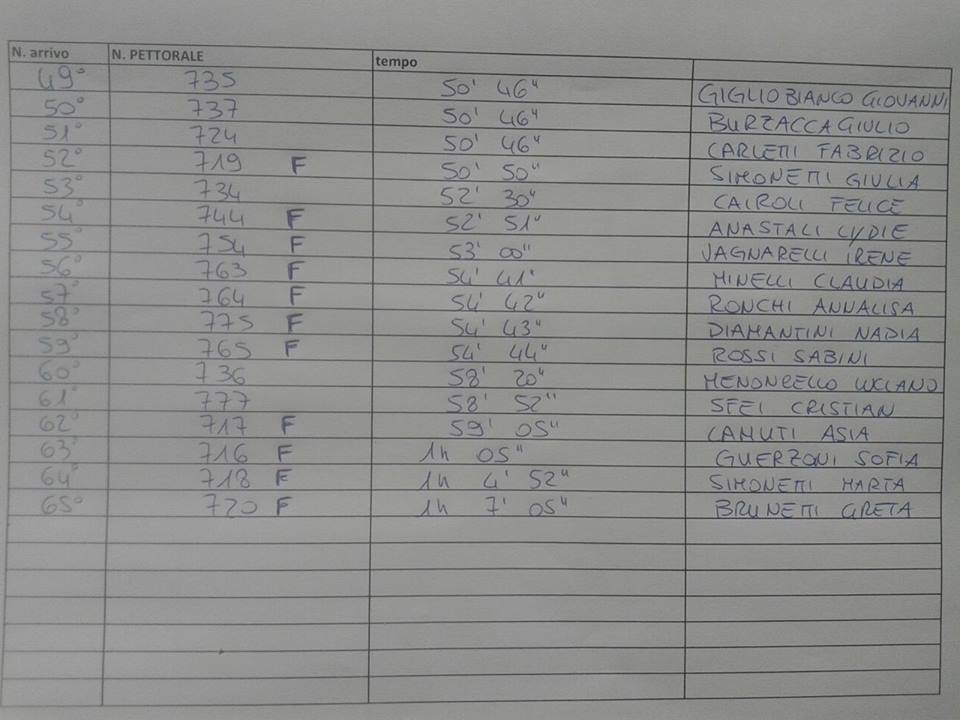 N. arrivo N. PETTORALE tempo
49° 735 50' 46" GIGLIOBIANCO GIOVANNI
50° 737 50' 46" BURZACCA GIULIO
51° 724 50' 46" CARLETTI FABRIZIO
52° 719 F 50' 50" SIMONETTI GIULIA
53° 734 52' 30" CAIROLI FELICE
54° 744 F 52' 51" ANASTALI LYDIE
55° 754 F 53' 00" JAGNARELLI IRENE
56° 763 F 54' 41" MINELLI CLAUDIA
57° 764 F 54' 42" RONCHI ANNALISA
58° 775 F 54' 43" DIAMANTINI NADIA
59° 765 F 54' 44" ROSSI SABINI
60° 736 58' 20" MENONCELLO LUCIANO
61° 777 58' 52" SFEI CRISTIAN
62° 717 F 59' 05" CAMUTI ASIA
63° 716 F 1h 05" GUERZONI SOFIA
64° 718 F 1h 4' 52" SIMONETTI MARTA
65° 720 F 1h 7' 05" BRUNETTI GRETA